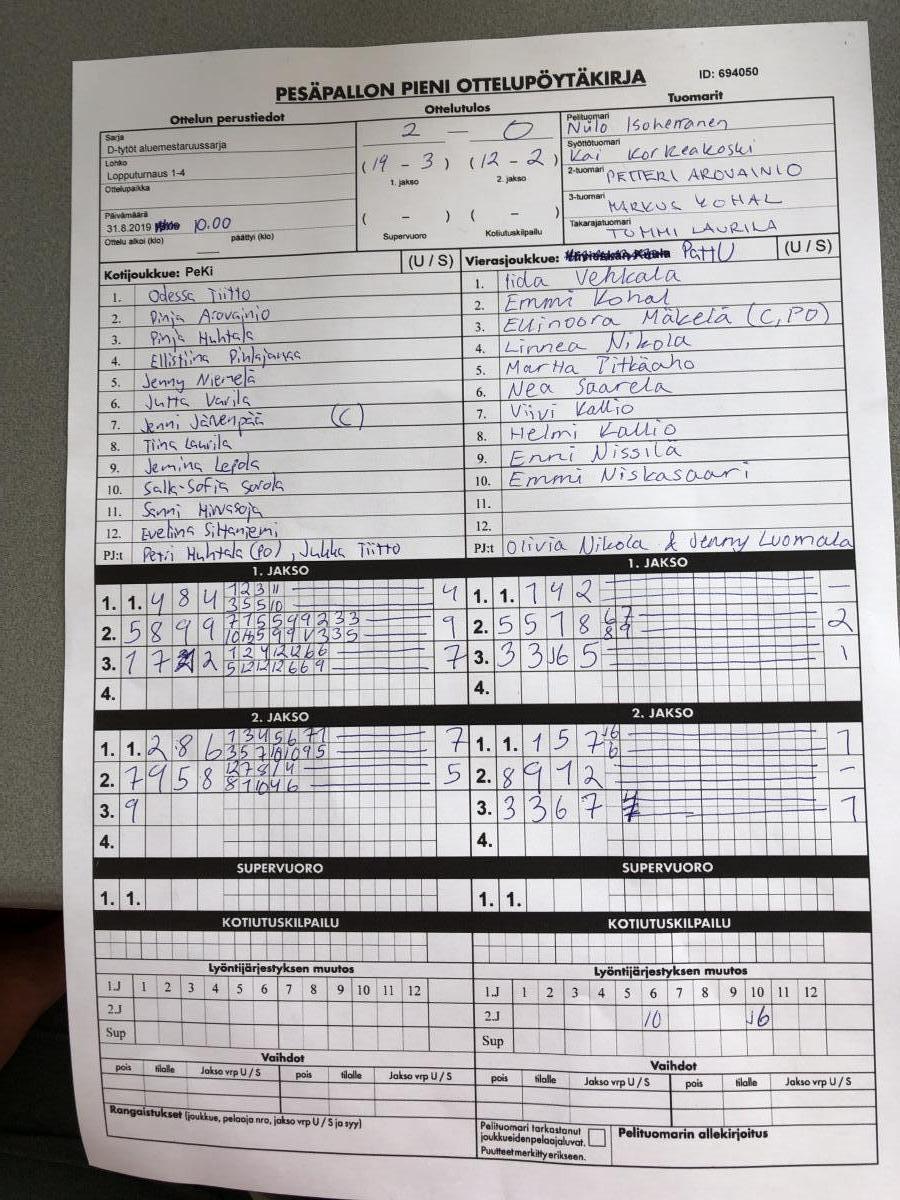 PESÄPALLON PIENI OTTELUPÖYTÄKIRJA
ID: 694050
Ottelun perustiedot
Sarja
D-tytöt aluemestaruussarja
Lohko
Lopputurnaus 1-4
Ottelupaikka
Päivämäärä
31.8.2019 10.00
Ottelu alkoi (klo) päättyi (klo)
Ottelutulos
2 - 0
(19 - 3) (12 - 2)
1. jakso 2. jakso
( - ) ( - )
Supervuoro Kotiutuskilpailu
Tuomarit
Pelituomari
Niilo Isoherranen
Syöttötuomari
Kai Korkeakoski
2-tuomari
PETTERI AROVAINIO
3-tuomari
MARKUS KOHAL
Takarajatuomari
TOMMI LAURILA
Kotijoukkue: PeKi (U / S)
1. Odessa Tiitto
2. Pinja Arovainio
3. Pinja Huhtala
4. Ellistiina
5. Jenny Niemelä
6. Jutta Varila
7. Jenni Järvenpää (C)
8. Tiina Laurila
9. Jemina Lepola
10. Salla-Sofia Sorola
11. Sanni Hirvasoja
12. Eveliina
PJ:t Petri Huhtala (PO), Jukka Tiitto
Vierasjoukkue: PattU (U / S)
1. Iida Vehkala
2. Emmi Kohal
3. Ellinoora Mäkelä (C, PO)
4. Linnea Nikola
5. Martta Pitkäaho
6. Nea Saarela
7. Viivi Kallio
8. Helmi Kallio
9. Enni Nissilä
10. Emmi Niskasaari
11.
12.
PJ:t Olivia Nikola & Jenny Luomala
1. JAKSO
1. 1. 4 8 4 1 2 3 11 4
3 5 5 10
2. 5 8 9 9 9
3. 1 7 2 2 7
4.
1. JAKSO
1. 1. 7 4 2 -
2. 5 5 7 8 6 7 2
8 9
3. 3 3 J6 5 1
4.
2. JAKSO
1. 1. 2 8 6 7
2. 7 9 5 8 5
3. 9
4.
2. JAKSO
1. 1. 1 5 7 J6 1
6
2. 8 9 1 2 -
3. 3 3 6 7 1
4.
SUPERVUORO
1. 1.
SUPERVUORO
1. 1.
KOTIUTUSKILPAILU
KOTIUTUSKILPAILU
Lyöntijärjestyksen muutos
1.J 1 2 3 4 5 6 7 8 9 10 11 12
2.J
Sup
Lyöntijärjestyksen muutos
1.J 1 2 3 4 5 6 7 8 9 10 11 12
2.J 10 J6
Sup
Vaihdot
pois tilalle Jakso vrp U / S pois tilalle Jakso vrp U / S
Vaihdot
pois tilalle Jakso vrp U / S pois tilalle Jakso vrp U / S
Rangaistukset (joukkue, pelaaja nro, jakso vrp U / S ja syy)
Pelituomari tarkastanut
joukkueidenpelaajaluvat.
Puutteet merkitty erikseen.
Pelituomarin allekirjoitus